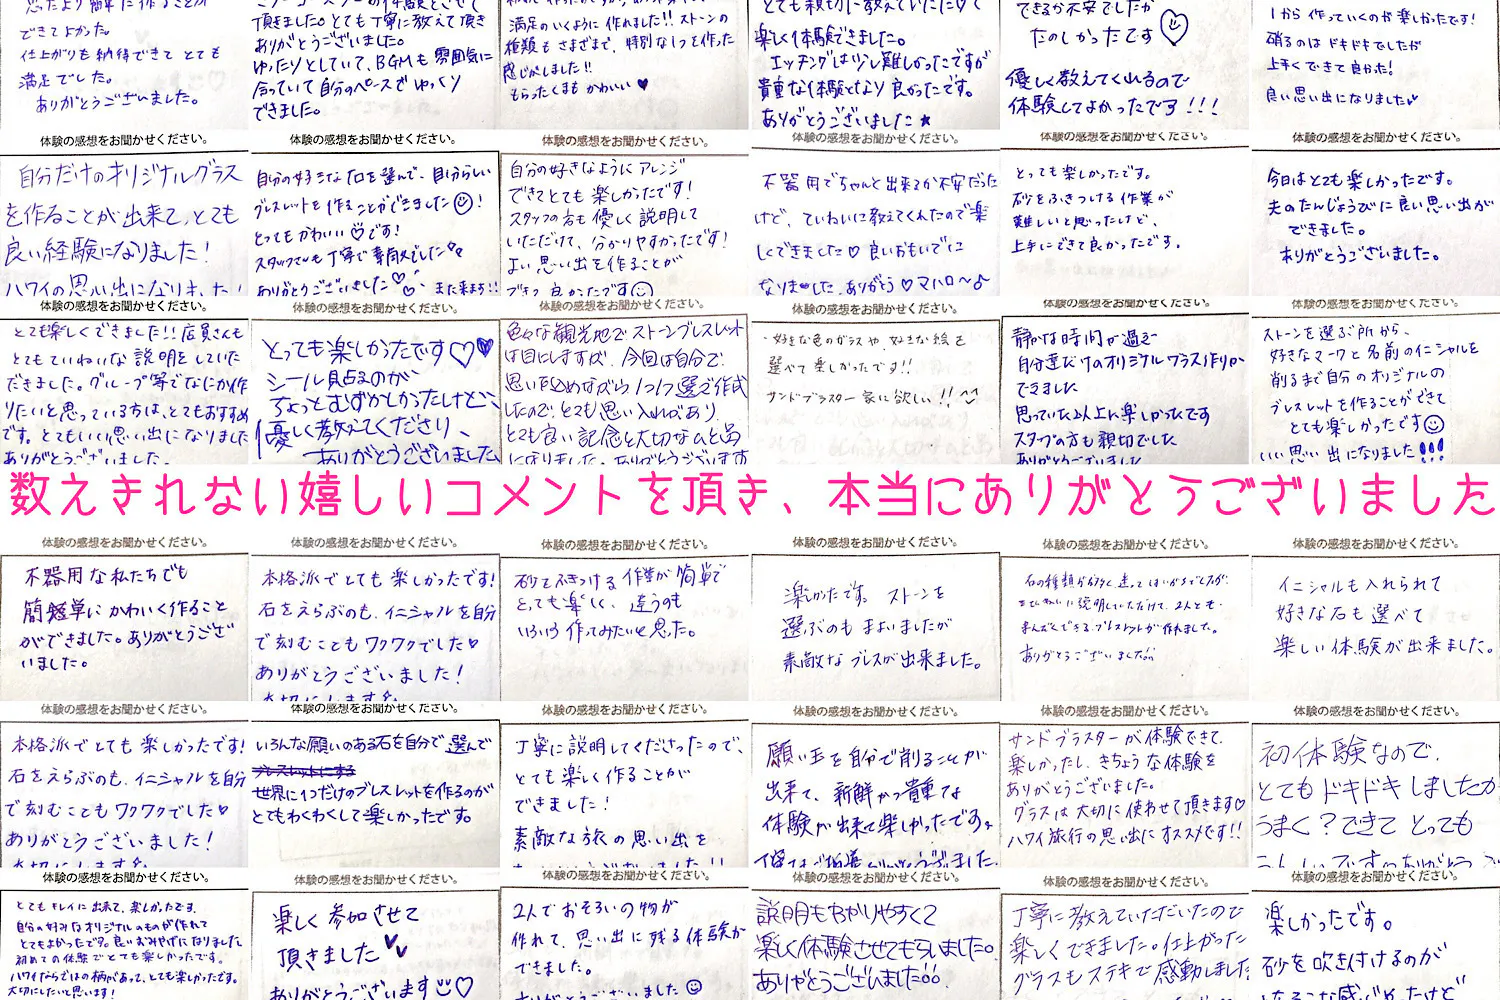 できてよかった。
仕上がりも納得できて とても
満足でした。
ありがとうございました。
頂きました。とても丁寧に教えて頂き
ありがとうございました。
ゆったりとしていて、BGMも雰囲気に
合っていて自分のペースでゆっくり
できました。
満足のいくように作れました!! ストーンの
種類もさまざまで、特別な1つを作った
感じがしました!!
もらったくまも かわいい♥
とても親切に教えていただいて
楽しく体験できました。
エッチングは少し難しかったですが
貴重な体験となり良かったです。
ありがとうございました★
できるか不安でしたが
たのしかったです
優しく教えてくれるので
体験してよかったです!!!
1から作っていくのが楽しかったです!
硝るのはドキドキでしたが
上手くできて良かった!
良い思い出になりました♪
体験の感想をお聞かせください。
体験の感想をお聞かせください。
体験の感想をお聞かせください。
体験の感想をお聞かせください。
体験の感想をお聞かせください。
体験の感想をお聞かせください。
自分だけのオリジナルグラス
を作ることが出来て、とても
良い経験になりました!
ハワイの思い出になりました!
自分の好きな石を選んで、自分らしい
ブレスレットを作ることができました☺!
とってもかわいい♡です!
スタッフさんも丁寧で素敵でした
ありがとうございました♡ また来ます!!
自分の好きなように アレンジ
できてとても楽しかったです!
スタッフの方も優しく説明して
いただけて、分かりやすかったです!
よい思い出を作ることが
できて良かったです☺
不器用でちゃんと出来るか不安だった
けど、ていねいに教えてくれたので楽
しくできました♡ 良いおもいでに
なりました。ありがとう♡マハロ～♪
とっても楽しかったです。
砂をふきつける作業が
難しいと思ったけど、
上手にできて良かったです。
今日はとても楽しかったです。
夫のたんじょうびに良い思い出が
できました。
ありがとうございました。
体験の感想をお聞かせください。
体験の感想をお聞かせください。
体験の感想をお聞かせください。
体験の感想をお聞かせください。
体験の感想をお聞かせください。
体験の感想をお聞かせください。
とても楽しくできました!! 店員さんも
とてもていねいな説明をしていた
だきました。グループ等でなにか作
りたいと思っている方は、とてもおすすめ
です。とてもいい思い出になりました
ありがとうございました。
とっても楽しかったです♡♥
シール貼るのが
ちょっとむずかしかったけど、
優しく教えてくださり、
ありがとうございました
色々な観光地でストーンブレスレット
は目にしますが、今回は自分で
思いを込めながら1つ1つ選んで作成
したので、とても思い入れがあり
とても良い記念と大切なひと品
になりました。ありがとうございます
好きな色のガラスや、好きな絵を
選べて楽しかったです!!
サンドブラスター 家に欲しい!!
静かな時間が過ぎ
自分達だけのオリジナルグラス作りが
できました
思っていた以上に楽しかったです
スタッフの方も親切でした
ありがとうございました
ストーンを選ぶ所から、
好きなマークと名前のイニシャルを
削るまで自分のオリジナルの
ブレスレットを作ることができて
とても楽しかったです☺
いい思い出になりました!!!
数えきれない嬉しいコメントを頂き、本当にありがとうございました
体験の感想をお聞かせください。
体験の感想をお聞かせください。
体験の感想をお聞かせください。
体験の感想をお聞かせください。
体験の感想をお聞かせください。
体験の感想をお聞かせください。
不器用な私たちでも
簡単にかわいく作ること
ができました。ありがとうござ
いました。
本格派でとても楽しかったです!
石をえらぶのも、イニシャルを自分
で刻むこともワクワクでした♡
ありがとうございました!
大切にします
砂をふきつける作業が簡単で
とっても楽しく、違うのも
いろいろ作ってみたいと思った。
楽しかったです。 ストーンを
選ぶのもまよいましたが
素敵なブレスが出来ました。
ありがとうございました
イニシャルも入れられて
好きな石も選べて
楽しい体験が出来ました。
体験の感想をお聞かせください。
体験の感想をお聞かせください。
体験の感想をお聞かせください。
体験の感想をお聞かせください。
体験の感想をお聞かせください。
体験の感想をお聞かせください。
本格派でとても楽しかったです!
石をえらぶのも、イニシャルを自分
で刻むこともワクワクでした♡
ありがとうございました!
大切にします
いろんな願いのある石を自分で選んで
ブレスレットにする
世界に1つだけのブレスレットを作るのが
とてもわくわくして楽しかったです。
丁寧に説明してくださったので、
とても楽しく作ることが
できました!
素敵な旅の思い出を
ありがとうございました!!
願い玉を自分で削ることが
出来て、新鮮かつ貴重な
体験が出来て楽しかったです。
サンドブラスターが体験できて、
楽しかったし、きちょうな体験を
ありがとうございました。
グラスは大切に使わせて頂きます♡
ハワイ旅行の思い出にオススメです!!
初体験なので、
とてもドキドキしましたが
うまく?できて とっても
体験の感想をお聞かせください。
体験の感想をお聞かせください。
体験の感想をお聞かせください。
体験の感想をお聞かせください。
体験の感想をお聞かせください。
体験の感想をお聞かせください。
とてもキレイに出来て、楽しかったです。
自分の好みなオリジナルのものが作れて
とてもよかったです。良いおみやげになりました
初めての体験でとても楽しかったです。
ハワイならではの柄があって、とても楽しかったです。
大切にしたいと思います!
楽しく参加させて
頂きました
ありがとうございます♡
2人でおそろいの物が
作れて、思い出に残る体験が
できました。
ありがとうございました☺
説明もわかりやすくて
楽しく体験させてもらいました。
ありがとうございました
丁寧に教えていただいたので
楽しくできました。仕上がった
グラスもステキで感動しました
楽しかったです。
砂を吹き付けるのが